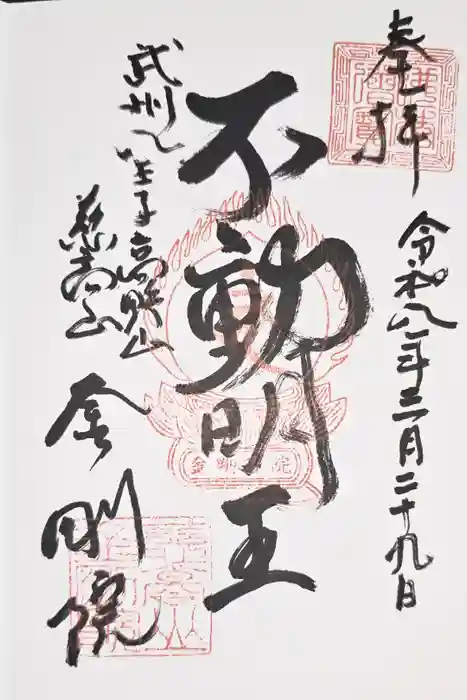 奉拝
令和八年三月二十九日
不動明王
金剛院
武州八王子高野山
慈高山
金剛院